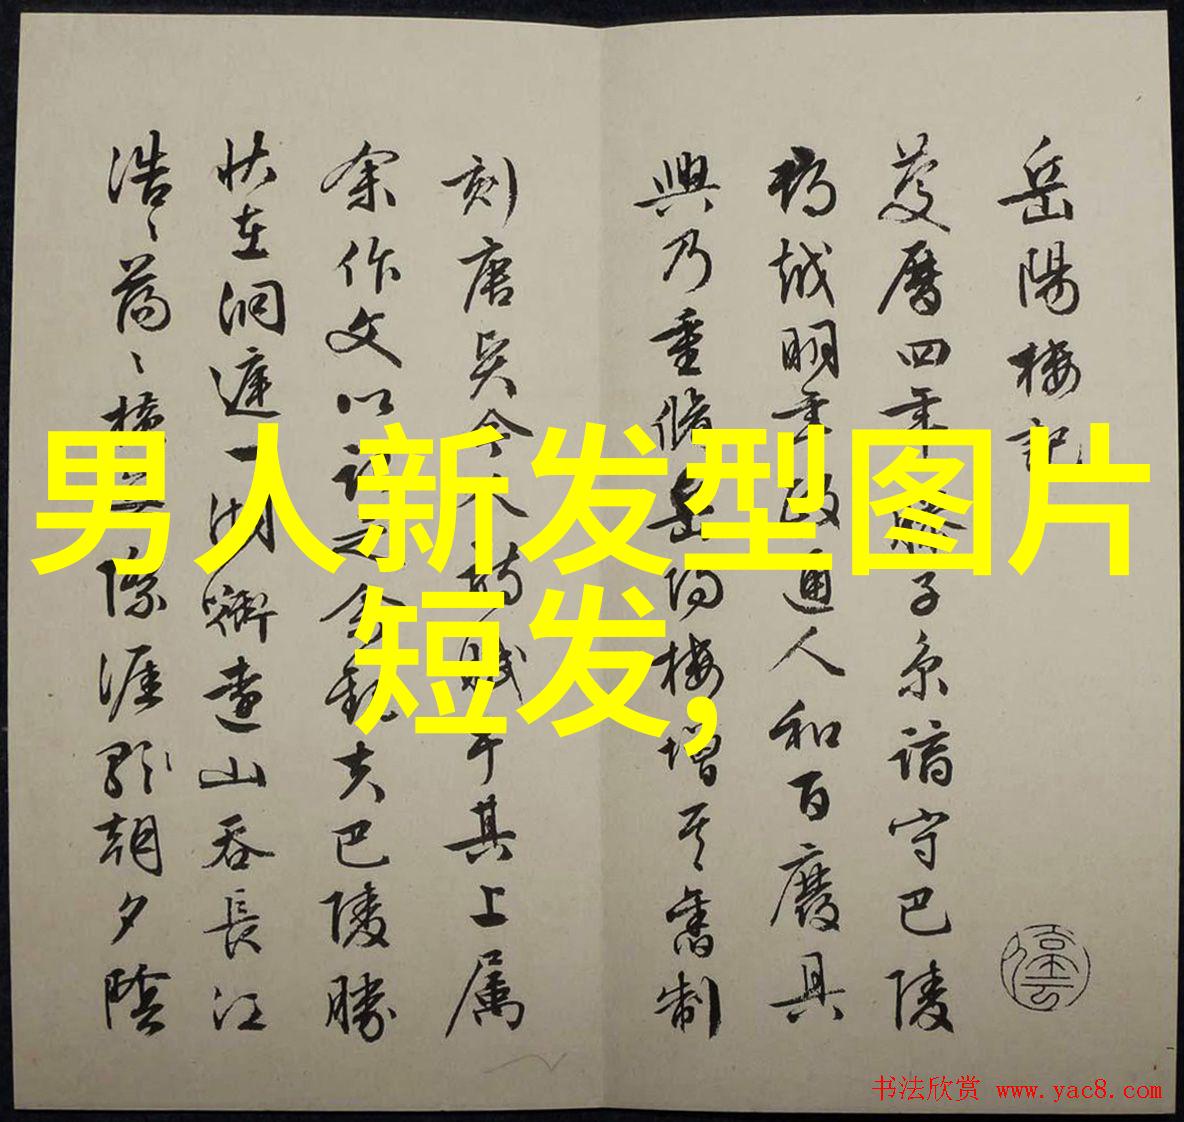 岳陽樓記
慶曆四年 子京謫守巴陵
郡越明年政通人和百廢具
興乃重脩岳陽樓增其舊制
刻唐賢今人詩賦于其上屬
余作文以記之予觀夫巴陵勝
狀在洞庭一湖銜遠山吞長江
浩〻蕩〻橫無際涯朝夕陰
男人新发型图片
短发,
书法欣赏 www.yac8.com